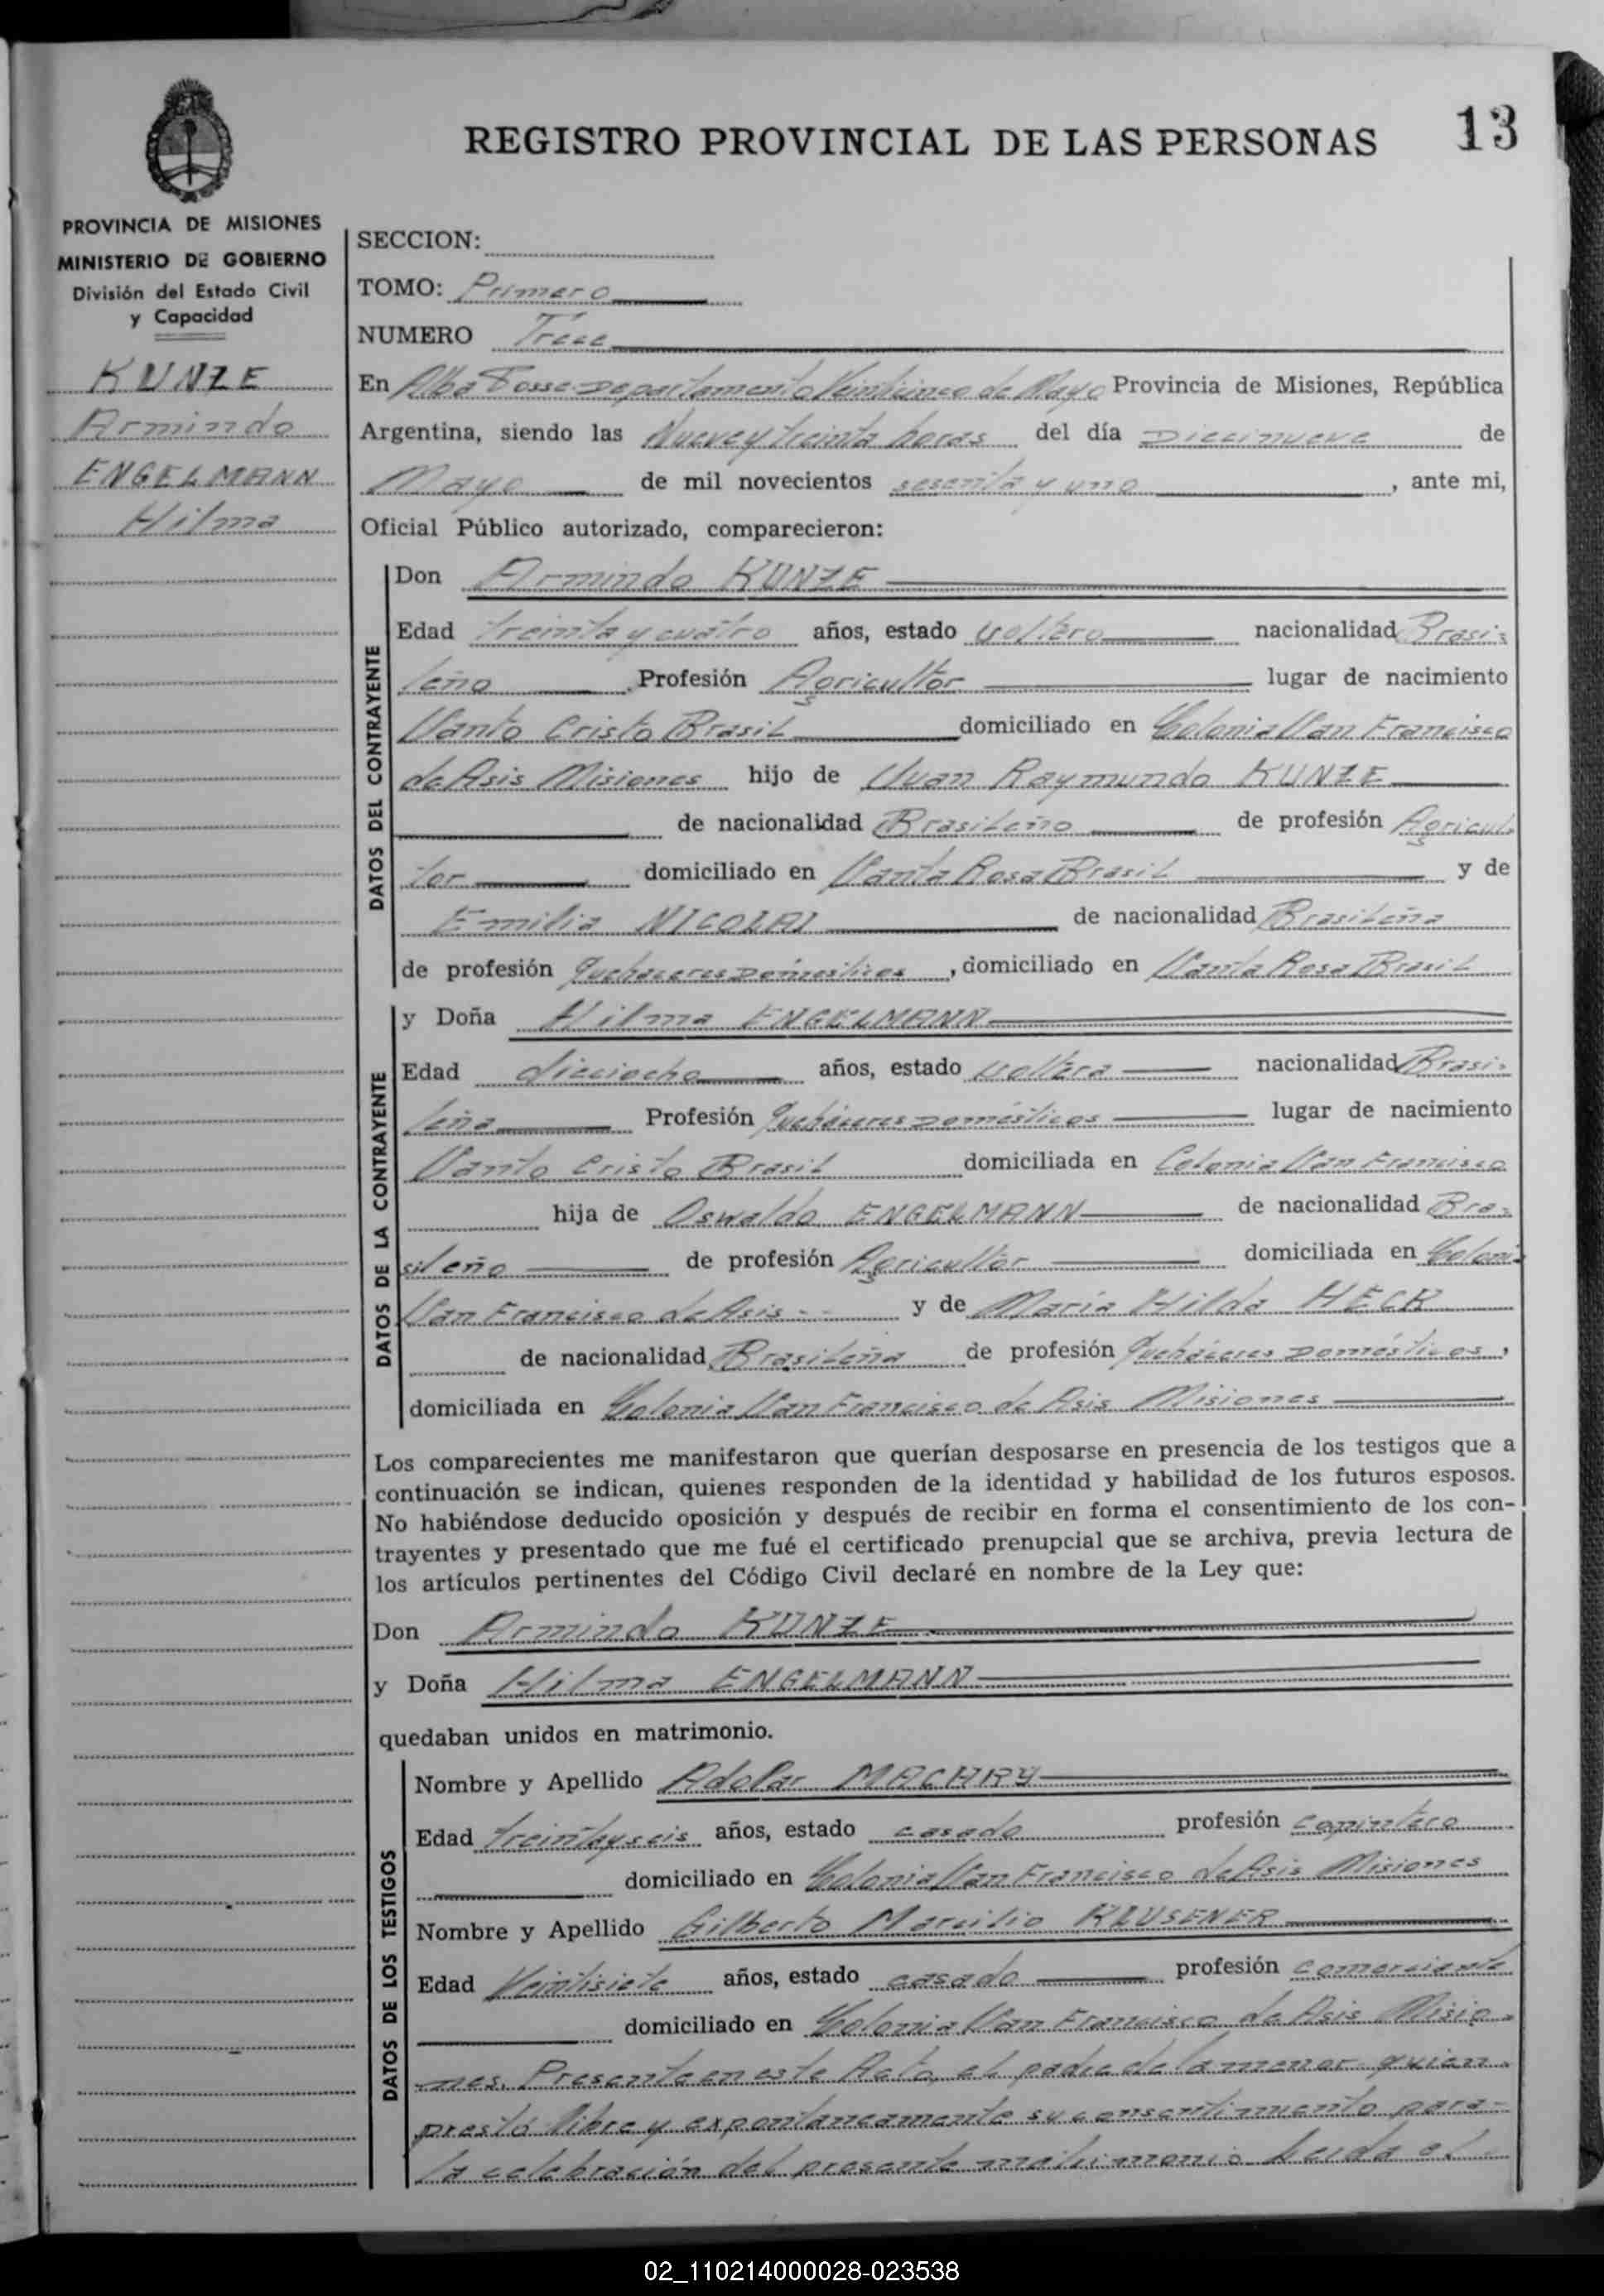 13
REGISTRO PROVINCIAL DE LAS PERSONAS
PROVINCIA DE MISIONES
MINISTERIO DE GOBIERNO
División del Estado Civil
y Capacidad
KUNZE
Armindo
ENGELMANN
Hilma
SECCION:
TOMO: Primero
NUMERO Trece
En Alba Posse Departamento Veinticinco de Mayo Provincia de Misiones, República
Argentina, siendo las Nueve y treinta horas del día Diecinueve de
Mayo de mil novecientos sesenta y uno, ante mi,
Oficial Público autorizado, comparecieron:
DATOS DEL CONTRAYENTE
Don Armindo KUNZE
Edad treinta y cuatro años, estado soltero nacionalidad Brasi-
leño Profesión Agricultor lugar de nacimiento
Santo Cristo Brasil domiciliado en Colonia San Francisco
de Asis Misiones hijo de Juan Raymundo KUNZE
de nacionalidad Brasileño de profesión Agricul-
tor domiciliado en Santa Rosa Brasil y de
Emilia NICOLAI de nacionalidad Brasileña
de profesión Quehaceres Domésticos, domiciliado en Santa Rosa Brasil
DATOS DE LA CONTRAYENTE
y Doña Hilma ENGELMANN
Edad dieciocho años, estado soltera nacionalidad Brasi-
leña Profesión Quehaceres Domésticos lugar de nacimiento
Santo Cristo Brasil domiciliada en Colonia San Francisco
hija de Oswaldo ENGELMANN de nacionalidad Bra-
sileño de profesión Agricultor domiciliada en Colonia
San Francisco de Asis y de María Hilda HECK
de nacionalidad Brasileña de profesión Quehaceres Domésticos,
domiciliada en Colonia San Francisco de Asis Misiones
Los comparecientes me manifestaron que querían desposarse en presencia de los testigos que a
continuación se indican, quienes responden de la identidad y habilidad de los futuros esposos.
No habiéndose deducido oposición y después de recibir en forma el consentimiento de los con-
trayentes y presentado que me fué el certificado prenupcial que se archiva, previa lectura de
los artículos pertinentes del Código Civil declaré en nombre de la Ley que:
Don Armindo KUNZE
y Doña Hilma ENGELMANN
quedaban unidos en matrimonio.
DATOS DE LOS TESTIGOS
Nombre y Apellido Adolar MACHRY
Edad treinta y seis años, estado casado profesión capintero
domiciliado en Colonia San Francisco de Asis Misiones
Nombre y Apellido Gilberto Marcilio KLUSENER
Edad Veintisiete años, estado casado profesión comerciante
domiciliado en Colonia San Francisco de Asis Misio-
nes. Presente en este Acto, el padre de la menor quien
prestó libre y expontaneamente su consentimiento para
la celebración del presente matrimonio Leida el
02_110214000028-023538